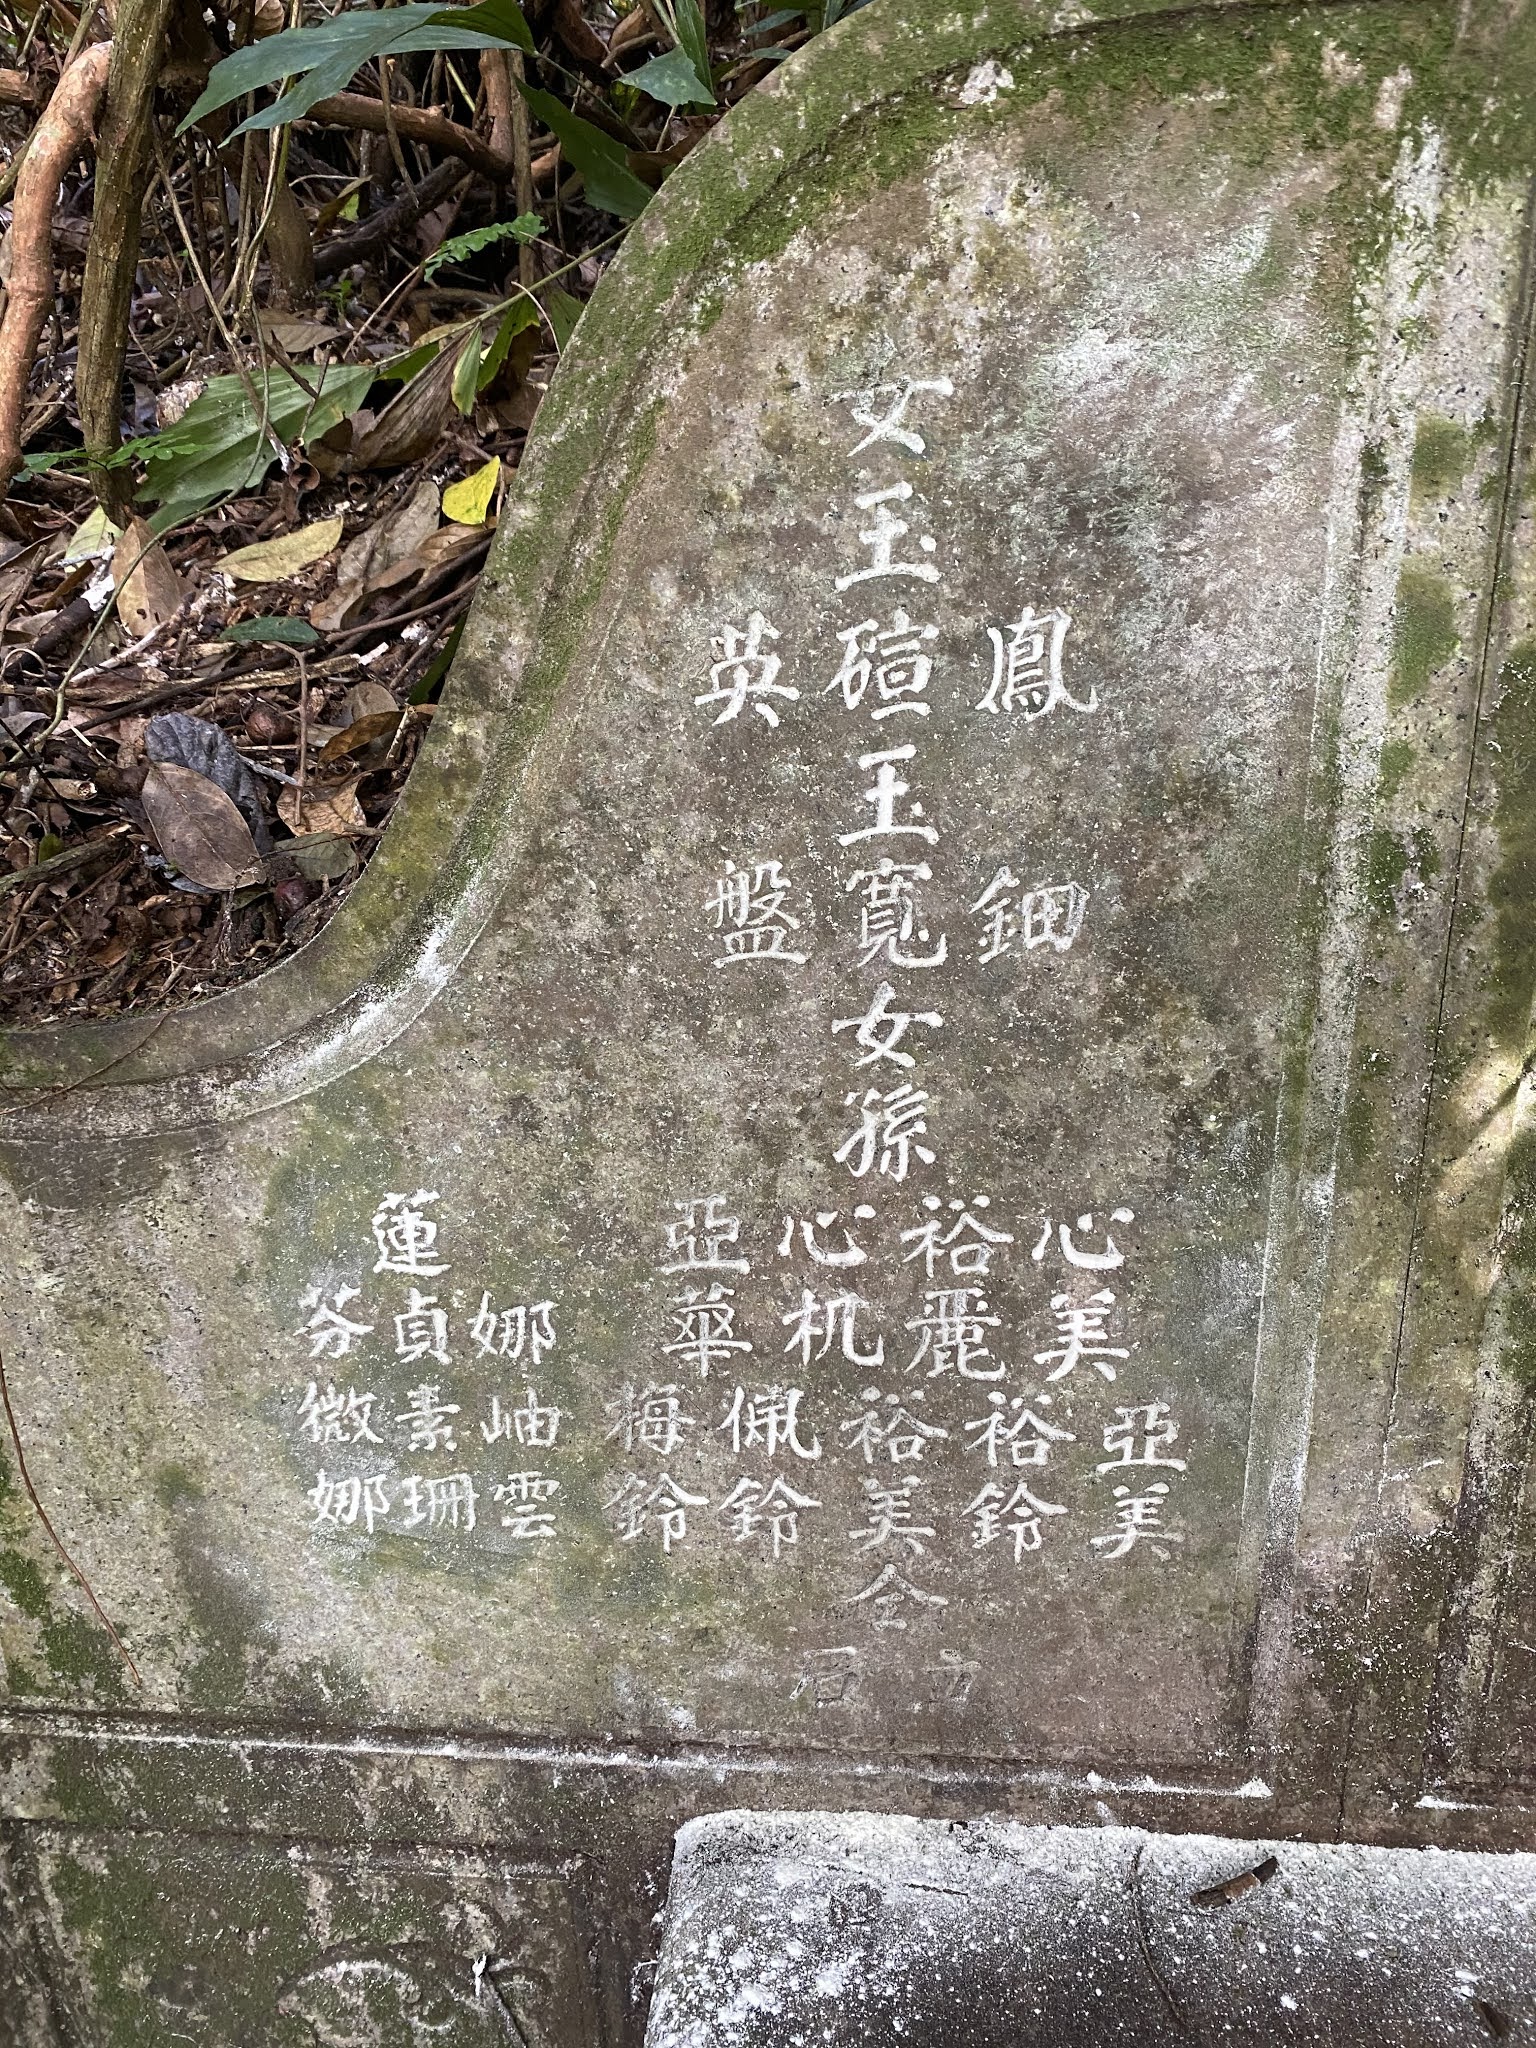 鳳鈿
女玉碹玉寬女孫
英盤
心美
亞美
裕麗
裕鈴
心机
裕美
亞華
佩鈴
梅鈴
仝
娜岫雲
蓮貞素珊
芬微娜